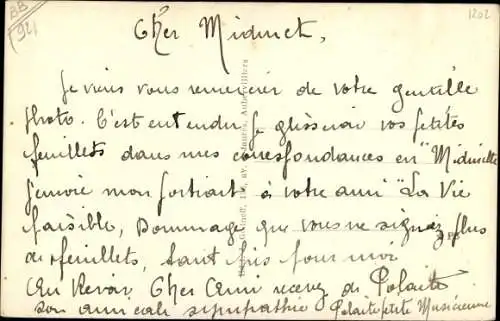 BB
(92)
1202
Cher Midinet,
Je viens vous remercier de votre gentille
photo. C'est entendu, je glisserai vos petites
feuillets dans mes correspondances en "Midinette
j'envoie mon portrait à votre ami "La Vie
paisible, Dommage que vous ne signez plus
de feuillets, tant pis pour moi
Au Revoir Cher Ami recevez de Polaite
son amicale sympathie Polaite petite Musicienne
Aubervilliers